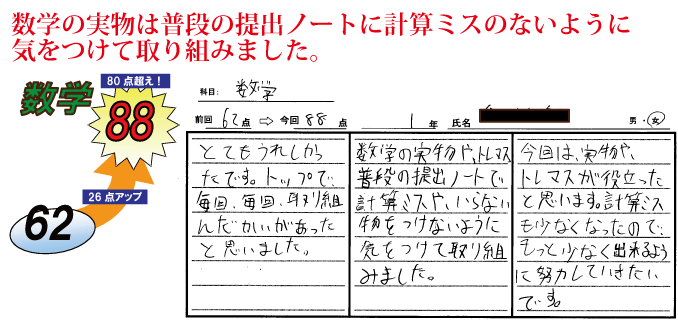 数学の実物は普段の提出ノートに計算ミスのないように
気をつけて取り組みました。
数学
80点超え！
88
26点アップ
62
科目: 数学
前回 62点 ⇨ 今回 88 点 1 年 氏名 男・女
とてもうれしかっ
たです。トップで、
毎回、毎回、取り組
んだかいがあった
と思いました。
数学の実物や、トレマス
普段の提出ノートで
計算ミスや、いらない
物をつけないように
気をつけて取り組
みました。
今回は、実物や、
トレマスが役立った
と思います。計算ミス
も少なくなったので、
もっと少なく出来るよう
に努力していきたい
です。